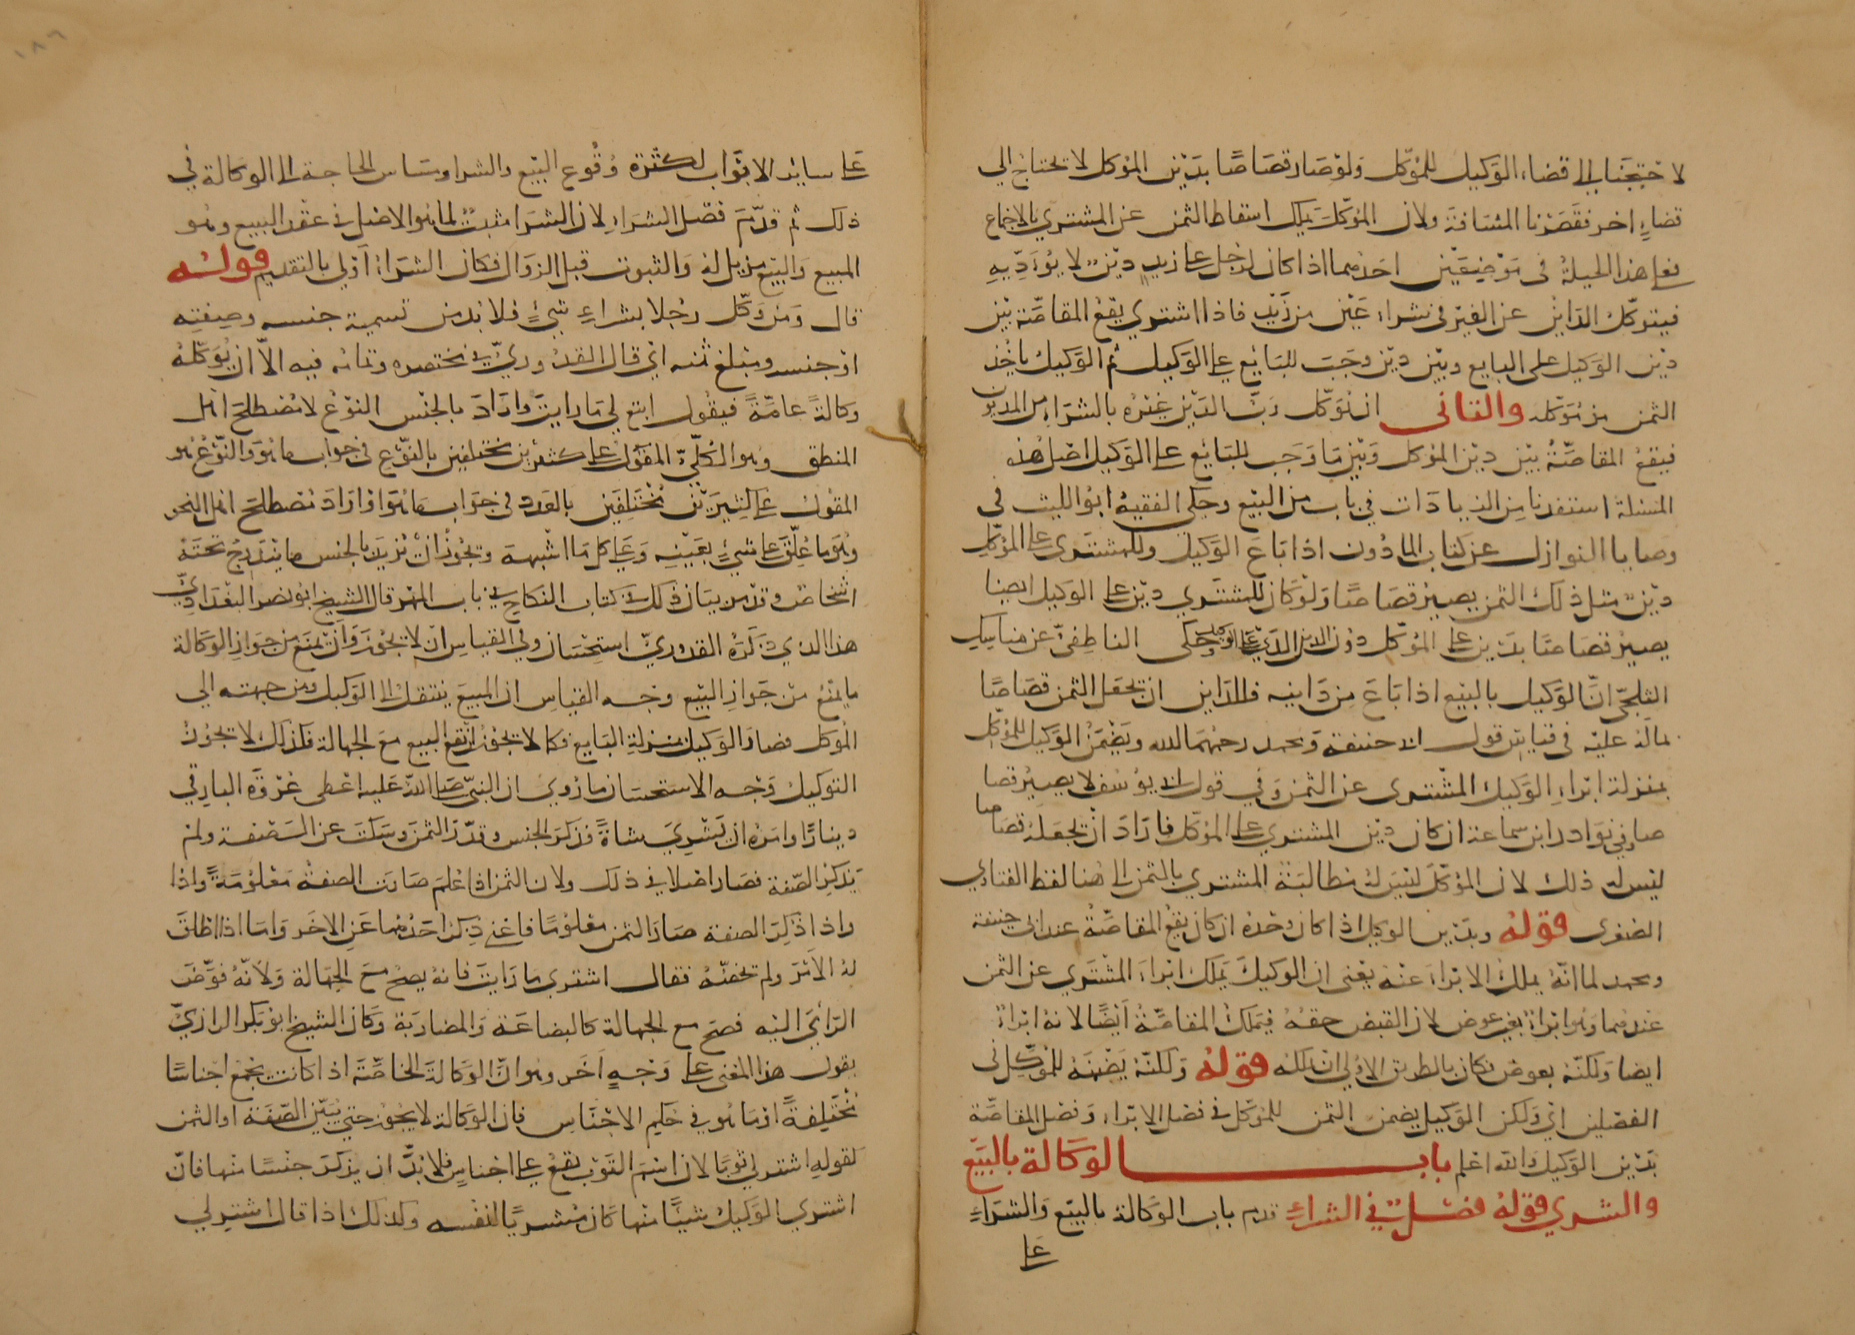 لاحتجنا الى قضاء الوكيل للموكل ولو صار قصاصا بدين الموكل لا نحتاج الي
قضاء اخر فقصرنا المسافة ولان الموكل يملك اسقاط الثمن عن المشتري بالاجماع
فعلى هذا الحيلة في موضعين احدهما اذا كان لرجل على زيد دين لا يؤديه
فيتوكل الداين عن الغير في شراء عين من زيد فاذا اشتري يقع المقاصة بين
دين الوكيل على البايع وبين دين وجب للبايع على الوكيل ثم الوكيل ياخذ
الثمن من موكله والثاني ان يوكل رب الدين غيره بالشراء من المديون
فيقع المقاصة بين دين الموكل وبين ما وجب للبايع على الوكيل اصل هذه
المسئلة استفدنا من الزيادات في باب من البيع وحكى الفقيه ابو الليث في
وصايا النوازل عن كتاب الماذون اذا باع الوكيل وللمشتري على الموكل
دين مثل ذلك الثمن يصير قصاصا ولو كان للمشتري دين على الوكيل ايضا
يصير قصاصا بدين على الموكل دون الدين الذي على الوكيل وحكى الناطفي عن مناسك
الثلجي ان الوكيل بالبيع اذا باع من داينه فللداين ان يجعل الثمن قصاصا
بماله عليه في قياس قول ابي حنيفة ومحمد رحمهما الله ويضمن الوكيل للموكل
بمنزلة ابراء الوكيل المشتري عن الثمن وفي قول ابي يوسف لا يصير قصا
صا وفي نوادر ابن سماعة ان كان دين المشتري على الموكل فاراد ان يجعله قصاصا
ليس له ذلك لان الموكل ليس له مطالبة المشتري بالثمن الى هنا لفظ الفتاوي
الصغرى قوله وبدين الوكيل اذا كان وحده ان كان يقع المقاصة عند ابي حنيفة
ومحمد لما انه يملك الابراء عنه يعني ان الوكيل يملك ابراء المشتري عن الثمن
عندهما وهو ابراء بغير عوض لان القبض حقه فيملك المقاصة ايضا لانه ابراء
ايضا ولكنه بعوض فكان بالطريق الاولى ان يملكه قوله ولكنه يضمنه للموكل في
الفصلين اي ولكن الوكيل يضمن الثمن للموكل في فصل الابراء وفصل المقاصة
بدين الوكيل والله اعلم باب الوكالة بالبيع
والشري قوله فصل في الشراء قدم باب الوكالة بالبيع والشراء
على
١٨٦
على سائر الابواب لكثرة وقوع البيع والشرا ومساس الحاجة الى الوكالة في
ذلك ثم قدم فصل الشراء لان الشرا مثبت لما هو الاصل في عقد البيع وهو
المبيع والبيع مزيل له والثبوت قبل الزوال فكان الشراء اولى بالتقديم قوله
قال ومن وكل رجلا بشراء شيء فلا بد من تسمية جنسه وصفته
او جنسه ومبلغ ثمنه اي قال القدوري في مختصره وتمامه فيه الا ان يوكله
وكالة عامة فيقول ابتع لي ما رايت واراد بالجنس النوع لا مصطلح اهل
المنطق وهو الكلي المقول على كثيرين مختلفين بالنوع في جواب ما هو والنوع هو
المقول على كثيرين مختلفين بالعدد في جواب ما هو او اراد مصطلح اهل النحو
وهو ما علق على شيء بعينه وعلى كل ما اشبهه ويجوز ان يريد بالجنس ما يندرج تحته
اشخاص وقد مر بيان ذلك في كتاب النكاح في باب المهر قال الشيخ ابو نصر البغدادي
هذا الذي ذكره القدوري استحسان وفي القياس ان لا يجوز وان يمنع من جواز الوكالة
ما يمنع من جواز البيع وجه القياس ان المبيع ينتقل الى الوكيل ومن جهته الي
الموكل فصار الوكيل بمنزلة البايع فكما لا يجوز ان يقع البيع مع الجهالة فكذلك لا يجوز
التوكيل وجه الاستحسان ما روي ان النبي صلى الله عليه اعطى عروة البارقي
دينارا وامره ان يشتري شاة فذكر الجنس وقدر الثمن وسكت عن الصفة ولم
يذكر الصفة فصار اصلا في ذلك ولان الثمن اذا علم صارت الصفة معلومة واذا
واذا ذكر الصفة صار الثمن معلوما فاغني ذكر احدهما عن الاخر واما اذا اطلق
له الامر ولم تخصه فقال اشتري ما رايت فانه يصح مع الجهالة ولانه فوض
الراي اليه فصح مع الجهالة كالبضاعة والمضاربة وكان الشيخ ابو بكر الرازي
يقول هذا المعنى على وجه اخر وهو ان الوكالة الخاصة اذا كانت بجمع اجناسا
مختلفة او ما هو في حكم الاجناس فان الوكالة لا يجوز حتى يبين الصفة او الثمن
كقوله اشتر لي ثوبا لان اسم الثوب يقع على اجناس فلا بد ان يذكر جنسا منها فان
اشتري الوكيل شيئا منها كان مشتريا لنفسه وكذلك اذا قال اشتر لي